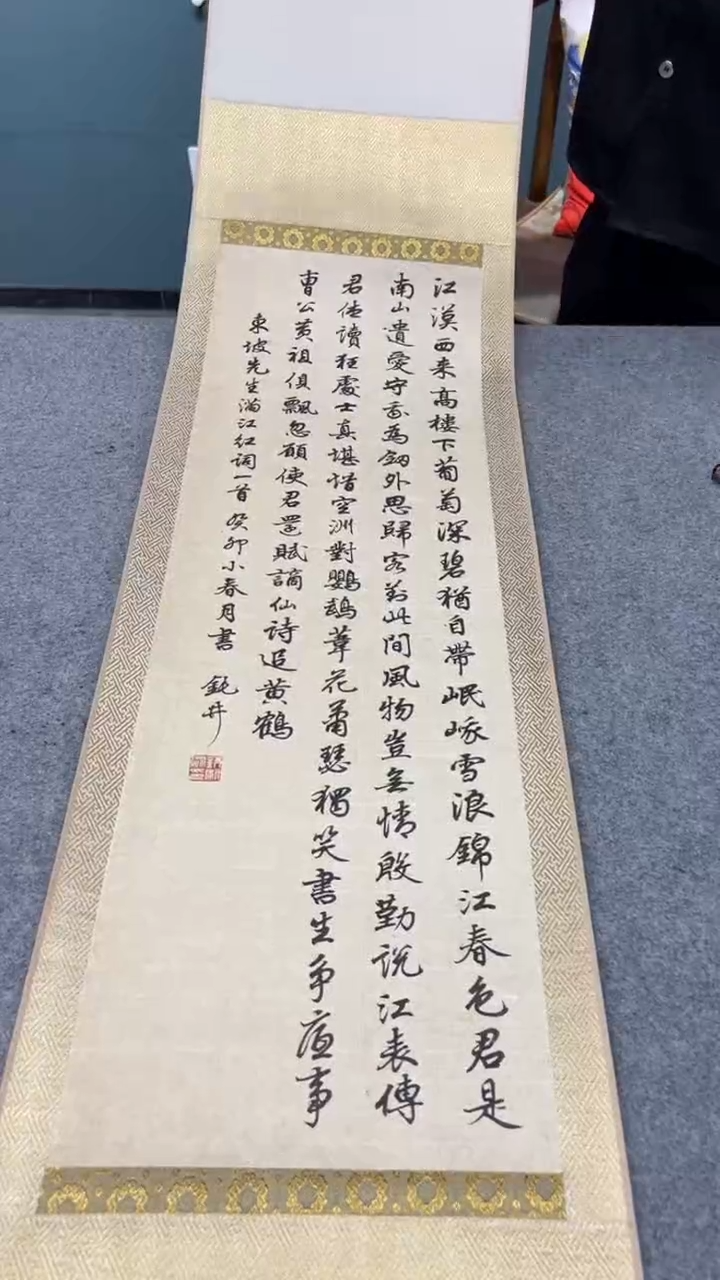 江漢西来高樓下葡萄深碧猶自帶岷峨雪浪錦江春色君是
南山遺愛守我為劔外思歸客對此間風物豈無情殷勤說江表傳
君休讀狂處士真堪惜空洲對鸚鵡葦花蕭瑟獨笑書生爭底事
曹公黃祖俱飄忽願使君還賦謫仙詩追黃鶴
東坡先生滿江紅詞一首 癸卯小春月書
鈍井